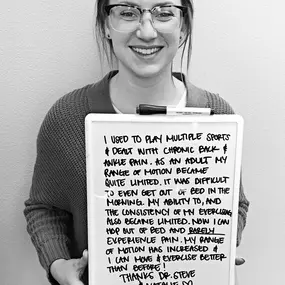 I USED TO PLAY MULTIPLE SPORTS
& DEALT WITH CHRONIC BACK &
ANKLE PAIN. AS AN ADULT MY
RANGE OF MOTION BECAME
QUITE LIMITED. IT WAS DIFFICULT
TO EVEN GET OUT OF BED IN THE
MORNING. MY ABILITY TO, AND
THE CONSISTENCY OF MY EXERCISING
ALSO BECAME LIMITED. NOW I CAN
HOP OUT OF BED AND RARELY
EXPERIENCE PAIN. MY RANGE
OF MOTION HAS INCREASED &
I CAN MOVE & EXERCISE BETTER
THAN BEFORE!
THANKS DR. STEVE
& NATALIE